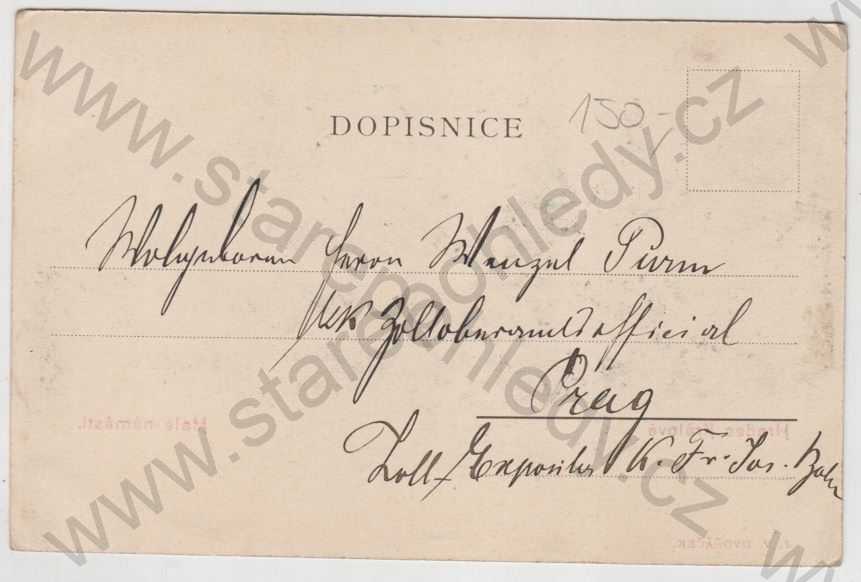 DOPISNICE
150-
Wohlgeboren Herrn Wenzel Purm
k.k. Zolloberamtsofficial
Prag
Zoll-Expositur K. Fr. Jos. Bahn
Malé náměstí.
Hradec Králové
DVOŘÁČEK.
www.starepohledy.cz
www.starepohledy.cz